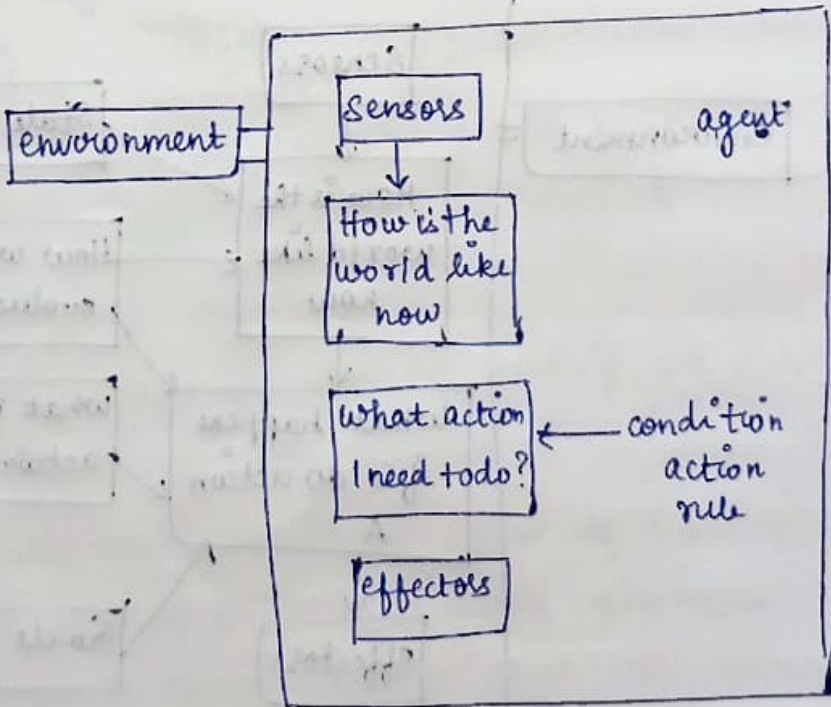 sensors
agent
environment
How is the
world like
now
what action
I need to do?
condition
action
rule
effectors